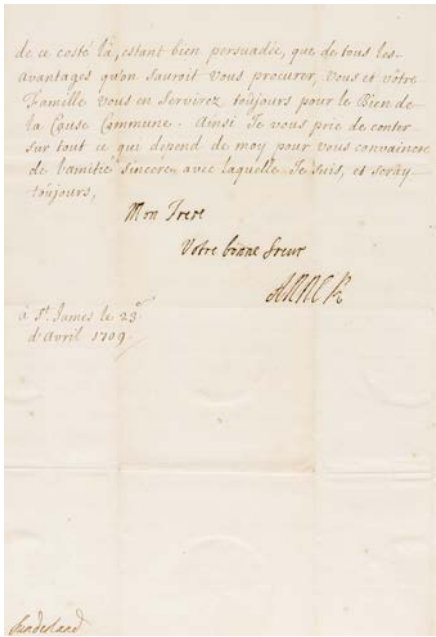 de ce costé là, estant bien persuadée, que de tous les
avantages qu'on sauroit vous procurer, vous et vôtre
Famille vous en servirez toûjours pour le Bien de
la Cause Commune. Ainsi Je vous prie de conter
sur tout ce qui depend de moy pour vous convaincre
de l'amitié sincere avec laquelle Je suis, et seray
toûjours,
Mon Frere
Votre bonne Soeur
ANNE R
à St. James le 23e
d'Avril 1709.
Sunderland